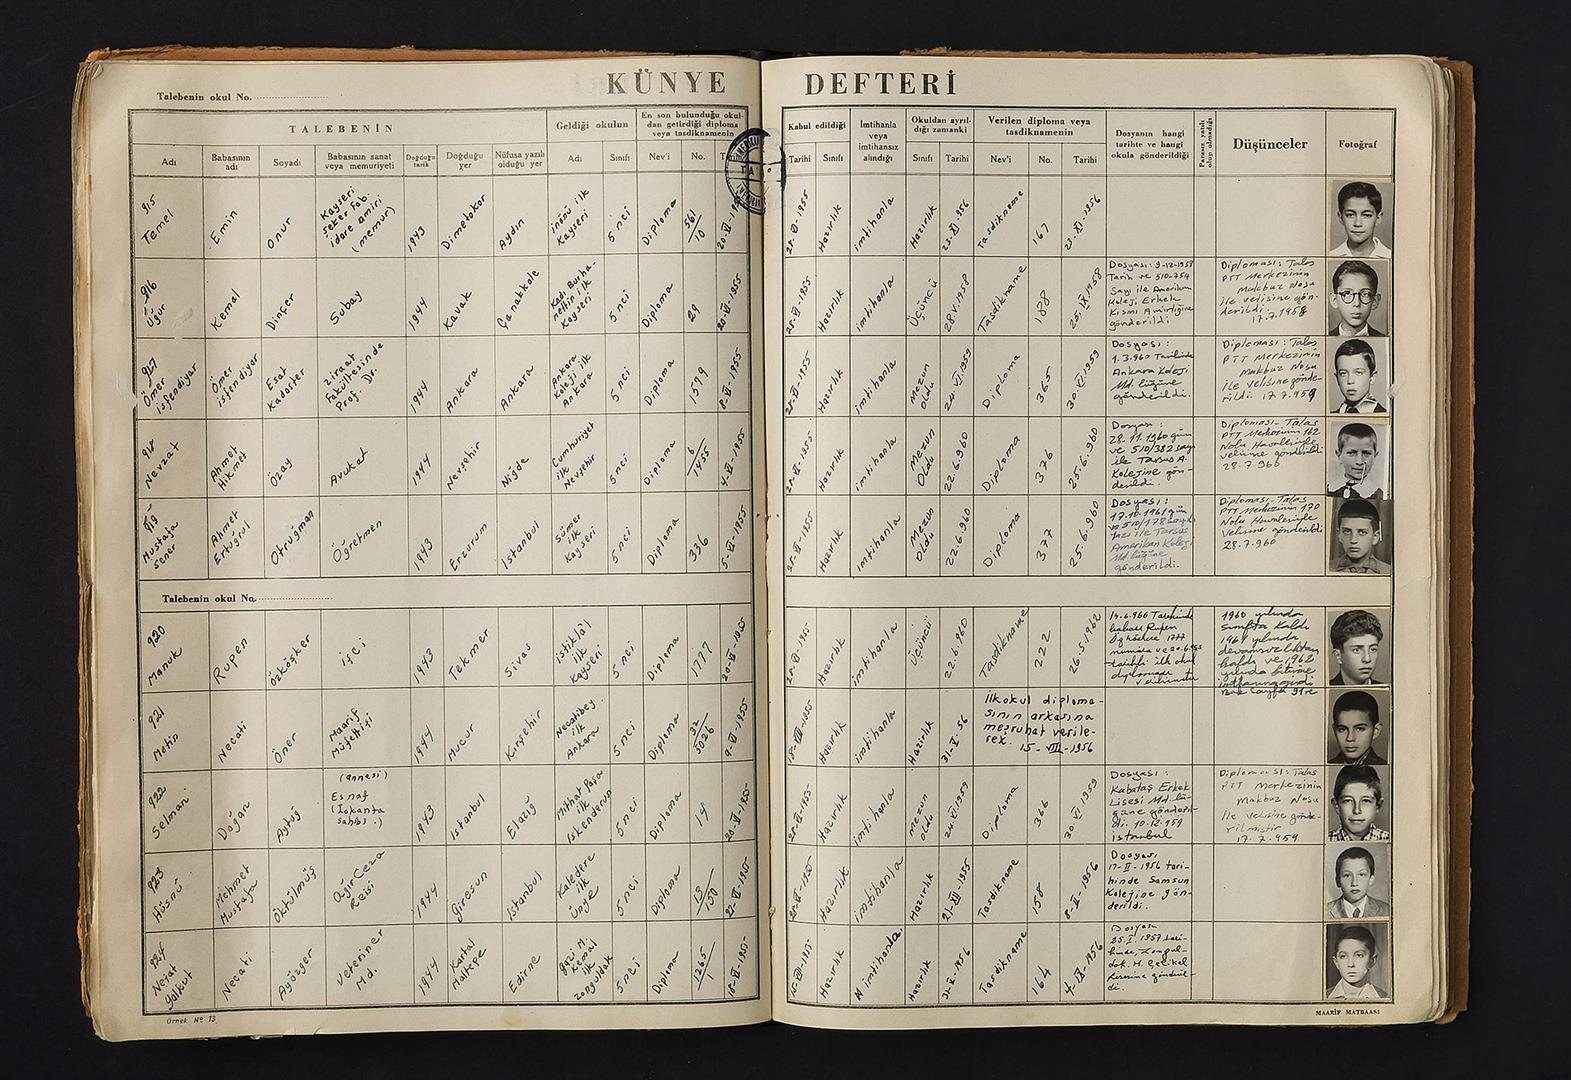 KÜNYE DEFTERİ
Talebenin okul No.
TALEBENİN
Geldiği okulun
En son bulunduğu okul-
dan getirdiği diploma
veya tasdiknamenin
Kabul edildiği
İmtihanla
veya
imtihansız
alındığı
Okuldan ayrıl-
dığı zamanki
Verilen diploma veya
tasdiknamenin
Dosyanın hangi
tarihte ve hangi
okula gönderildiği
Parasız yatılı
olup olmadığı
Düşünceler
Fotoğraf
Adı
Babasının
adı
Soyadı
Babasının sanat
veya memuriyeti
Doğduğu
tarih
Doğduğu
yer
Nüfusa yazılı
olduğu yer
Adı
Sınıfı
Nev'i
No.
Tarihi
Sınıfı
Sınıfı
Tarihi
Nev'i
No.
Tarihi
915
Temel
Emin
Onur
Kayseri
Şeker Fab.
idare amiri
(memur)
1943
Dimetokar
Aydın
inönü ilk
Kayseri
5 nci
Diploma
561/10
Hazırlık
imtihanla
Hazırlık
23-XI-956
Tasdikname
167
23-XI-1956
916
Uğur
Kemal
Dinçer
Subay
1944
Kavak
Çanakkale
Kadı Burha-
nettin ilk
Kayseri
5 nci
Diploma
29
20-VI-1955
Hazırlık
imtihanla
Üçüncü
28.V.1958
Tasdikname
188
25.IX.1958
Dosyası: 9-12-1958
Tarih ve 510-754
Sayı ile Amerikan
Koleji Erkek
Kısmı Amirliğine
gönderildi
Diploması: Talas
PTT Merkezinin
Makbuz Nosu
ile velisine gön-
derildi
17.7.1958
917
Ömer
isfendiyar
Ömer
isfendiyar
Esat
Kadaster
Ziraat
Fakültesinde
Prof.
Dr.
1944
Ankara
Ankara
Ankara
Koleji ilk
Ankara
5 nci
Diploma
1579
8-VI-1955
Hazırlık
imtihanla
Mezun
oldu
24.VI.1959
Diploma
365
30.VI.1959
Dosyası:
1.3.960 Tarihinde
Ankara Koleji
Md.lüğüne
gönderildi.
Diploması: Talas
PTT Merkezinin
Makbuz Nosu
ile velisine gönde-
rildi. 17.7.959
918
Nevzat
Ahmet
Hikmet
Özay
Avukat
1944
Nevşehir
Niğde
Cumhuriyet
ilk
Nevşehir
5 nci
Diploma
6/1455
4-VI-1955
Hazırlık
imtihanla
Mezun
Oldu
22.6.960
Diploma
376
25.6.960
Dosyası:
28.11.1960 gün
ve 510/382 sayı
ile Tarsus A.
Kolejine gön-
derildi.
Diploması-Talas
PTT Merkezinin 162
Nolu Havalesiyle
velisine gönderildi
28.7.960
919
Mustafa
Sener
Ahmet
Ertuğrul
Otruğman
Öğretmen
1943
Erzurum
istanbul
Sümer
ilk
Kayseri
5 nci
Diploma
336
5-VI-1955
Hazırlık
imtihanla
Mezun
Oldu
22.6.960
Diploma
377
25.6.960
Dosyası:
17.10.1961 gün
ve 510/178 sayılı
Yazı ile Tarsus
Amerikan Koleji
Md.lüğüne
gönderildi.
Diploması-Talas
PTT Merkezinin 170
Nolu Havalesiyle
Velisine gönderildi
28.7.960
Talebenin okul No.
920
Manuk
Rupen
Özköşker
işçi
1943
Tekmer
Sivas
istiklâl
ilk
Kayseri
5 nci
Diploma
1777
20-VI-1955
Hazırlık
imtihanla
Üçüncü
22.6.960
Tasdikname
222
26.5.1962
14.6.966 Tarihinde
babası Rupen
Özköşkere 1777
diploması
1960 yılında
sınıfta kaldı
1961 yılında
devamsızlıktan
kaldı ve 1962
yılında bitirme
921
Metin
Necati
Öner
Maarif
Müfettişi
1944
Mucur
Kırşehir
Necatibey
ilk
Ankara
5 nci
Diploma
32/5026
9-VI-1955
Hazırlık
imtihanla
Hazırlık
31-X-56
İlkokul diploma-
sının arkasına
meşruhat verile-
rek. 15-VIII-1956
922
Selman
Doğan
Aytuğ
(annesi)
Esnaf
(iskanta
sahibi.)
1943
istanbul
Elazığ
Mithat Paşa
ilk
İskenderun
5 nci
Diploma
14
20-VI-1955
Hazırlık
imtihanla
Mezun
oldu
24.VI.1959
Diploma
366
30.VI.1959
Dosyası:
Kabataş Erkek
Lisesi Md.lü-
ğüne gönderil-
di. 10.IX.959
istanbul
Diploması: Talas
PTT Merkezinin
Makbuz Nosu
ile velisine gönde-
rilmiştir
17.7.959
923
Hüsnü
Mehmet
Mustafa
Öktülmüş
Ağır Ceza
Reisi
1944
Giresun
istanbul
Kaledere
ilk
Ünye
5 nci
Diploma
13/150
27-VI-1955
Hazırlık
imtihanla
Hazırlık
21-XII-1955
Tasdikname
158
8-II-1956
Dosyası
17-II-1956 tari-
hinde Samsun
Kolejine gön-
derildi.
924
Nejat
Yalkut
Necati
Aygözger
Veteriner
Md.
1944
Kartal
Maltepe
Edirne
Gazi M.
Kemal
ilk
Zonguldak
5 nci
Diploma
1265
18-VI-1955
Hazırlık
imtihanla
Hazırlık
31-X-1956
Tasdikname
164
4-IX-1956
Dosyası
25.I.1957 tari-
hinde, Zongul-
dak. M. Çelikel
Lisesine gönderil-
di.
Örnek No 13
MAARİF MATBAASI